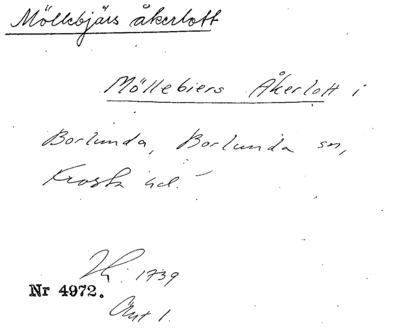 Möllebjärs åkerlott
Möllebiers Åkerlott i
Borlunda, Borlunda sn,
Frosta hd.
1739
Nr 4972.
Akt 1.